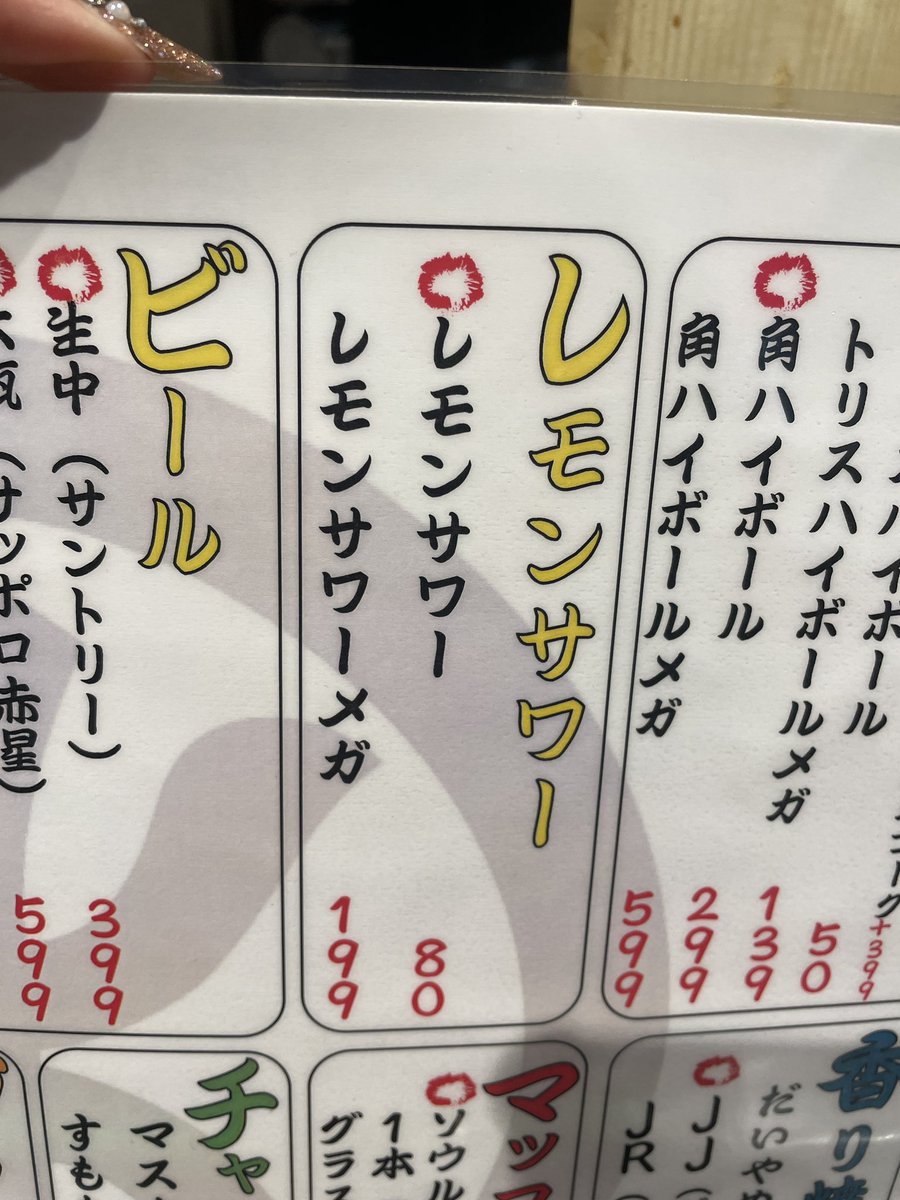 スハイボール
+399
50
トリスハイボールメガ
139
角ハイボール
299
角ハイボールメガ
599
レモンサワー
レモンサワー
80
レモンサワーメガ
199
ビール
生中(サントリー)
399
大瓶(サッポロ赤星)
599
香り
だいや
JJ
JR
マッ
ソウル
1本
グラス
チャ
マス
すも